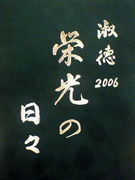 淑徳
2006
栄光の
日々